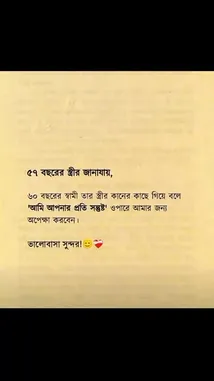 ৫৭ বছরের স্ত্রীর জানাযায়,
৬০ বছরের স্বামী তার স্ত্রীর কানের কাছে গিয়ে বলে
'আমি আপনার প্রতি সন্তুষ্ট' ওপারে আমার জন্য
অপেক্ষা করবেন।
ভালোবাসা সুন্দর!😊❤️‍🩹